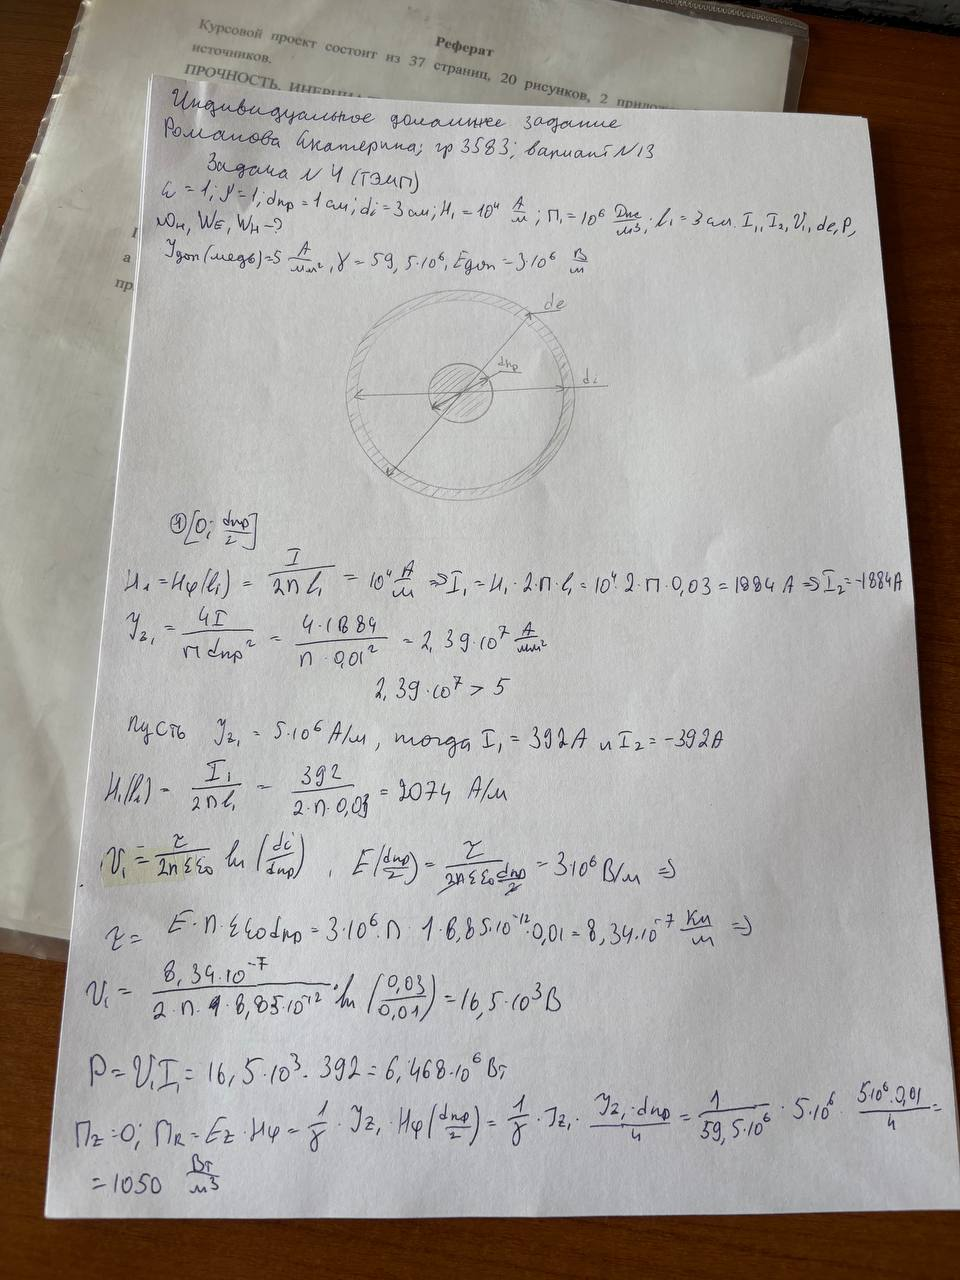 Реферат
Курсовой проект состоит из 37 страниц, 20 рисунков, 2
источников.
ПРОЧНОСТЬ,
Индивидуальное домашнее задание
Романова Екатерина; гр 3583; вариант N13
Задача N 4 (ТЭМП)
ε = 1; μ = 1; dпр = 1 см; di = 3 см; H₁ = 10⁴ А/м; П₁ = 10⁶ Дж/м³; l₁ = 3 см. I₁, I₂, V₁, de, P,
WE, WH - ?
Jдоп(медь) = 5 А/мм², γ = 59,5·10⁶, Eдоп = 3·10⁶ В/м
de
dпр
di
① [0; dпр/2]
H₁ = Hφ(l₁) = I/(2π l₁) = 10⁴ А/м ⇒ I₁ = H₁·2·π·l₁ = 10⁴·2·π·0,03 = 1884 А ⇒ I₂ = -1884А
Jz₁ = 4I/(π dпр²) = 4·1884/(π·0,01²) = 2,39·10⁷ А/мм²
2,39·10⁷ > 5
Пусть Jz₁ = 5·10⁶ А/м, тогда I₁ = 392А и I₂ = -392А
H₁(l₁) = I₁/(2π l₁) = 392/(2·π·0,03) = 2074 А/м
V₁ = τ/(2π εε₀) ln (di/dпр), E(dпр/2) = τ/(2π εε₀ dпр/2) = 3·10⁶ В/м ⇒
τ = E·π·εε₀dпр = 3·10⁶·π·1·8,85·10⁻¹²·0,01 = 8,34·10⁻⁷ Кл/м ⇒
V₁ = 8,34·10⁻⁷/(2·π·1·8,85·10⁻¹²)·ln (0,03/0,01) = 16,5·10³ В
P = V₁I₁ = 16,5·10³·392 = 6,468·10⁶ Вт
Пz = 0; ПR = Ez·Hφ = 1/γ·Jz₁·Hφ(dпр/2) = 1/γ·Jz₁·Jz₁·dпр/4 = 1/(59,5·10⁶)·5·10⁶·5·10⁶·0,01/4 =
= 1050 Вт/м³